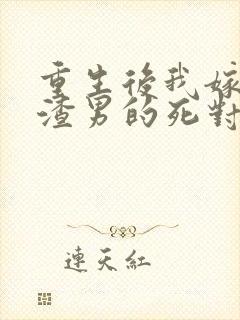 重生後我嫁
渣男的死對
連天紅